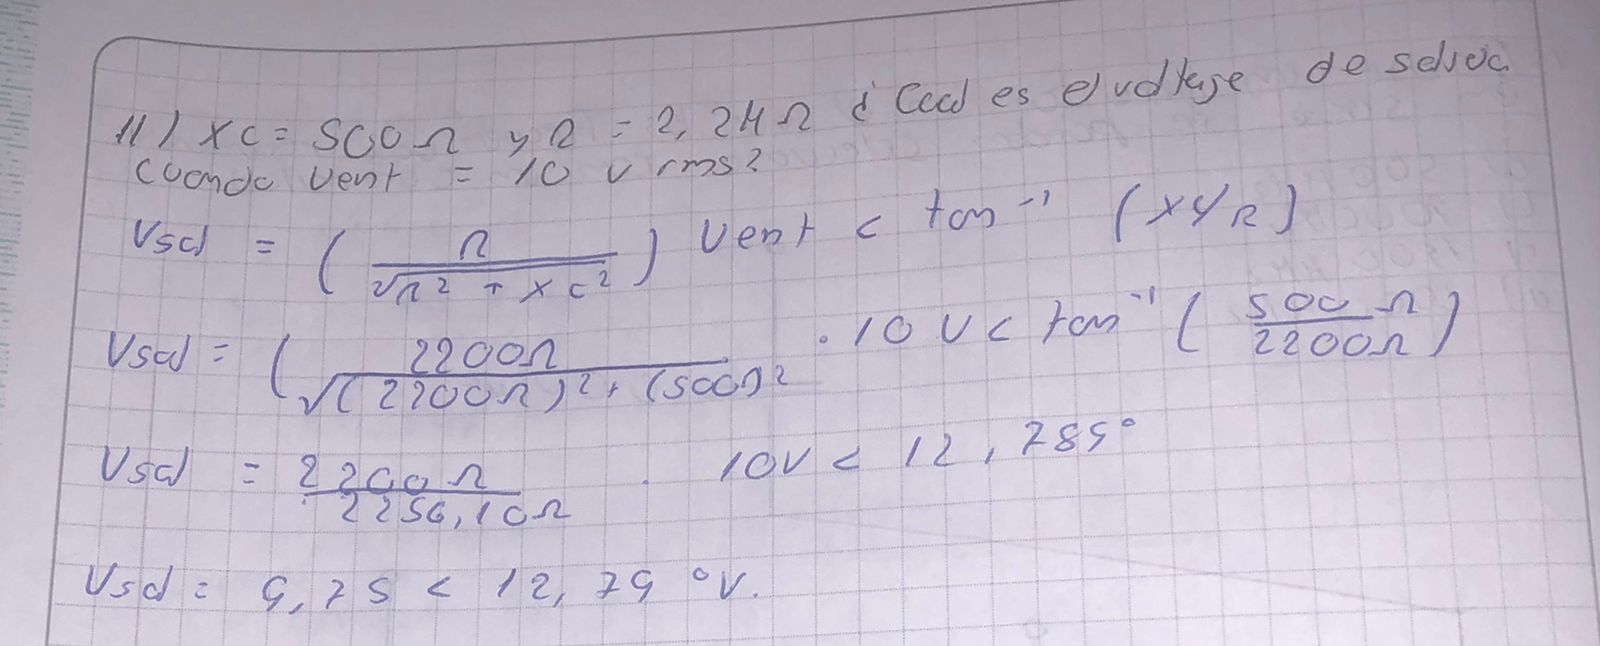 11) XC = 500Ω y R = 2,2KΩ ¿Cual es el voltaje de salida
cuando Vent = 10 V rms?
Vsal = (R / √R² + Xc²) Vent < tan⁻¹ (XC/R)
Vsal = (2200Ω / √(2200Ω)² + (500Ω)² · 10 V < tan⁻¹ (500 Ω / 2200Ω)
Vsal = 2200Ω / 2256,10Ω · 10V < 12,785°
Vsal = 9,75 < 12,79 °V.